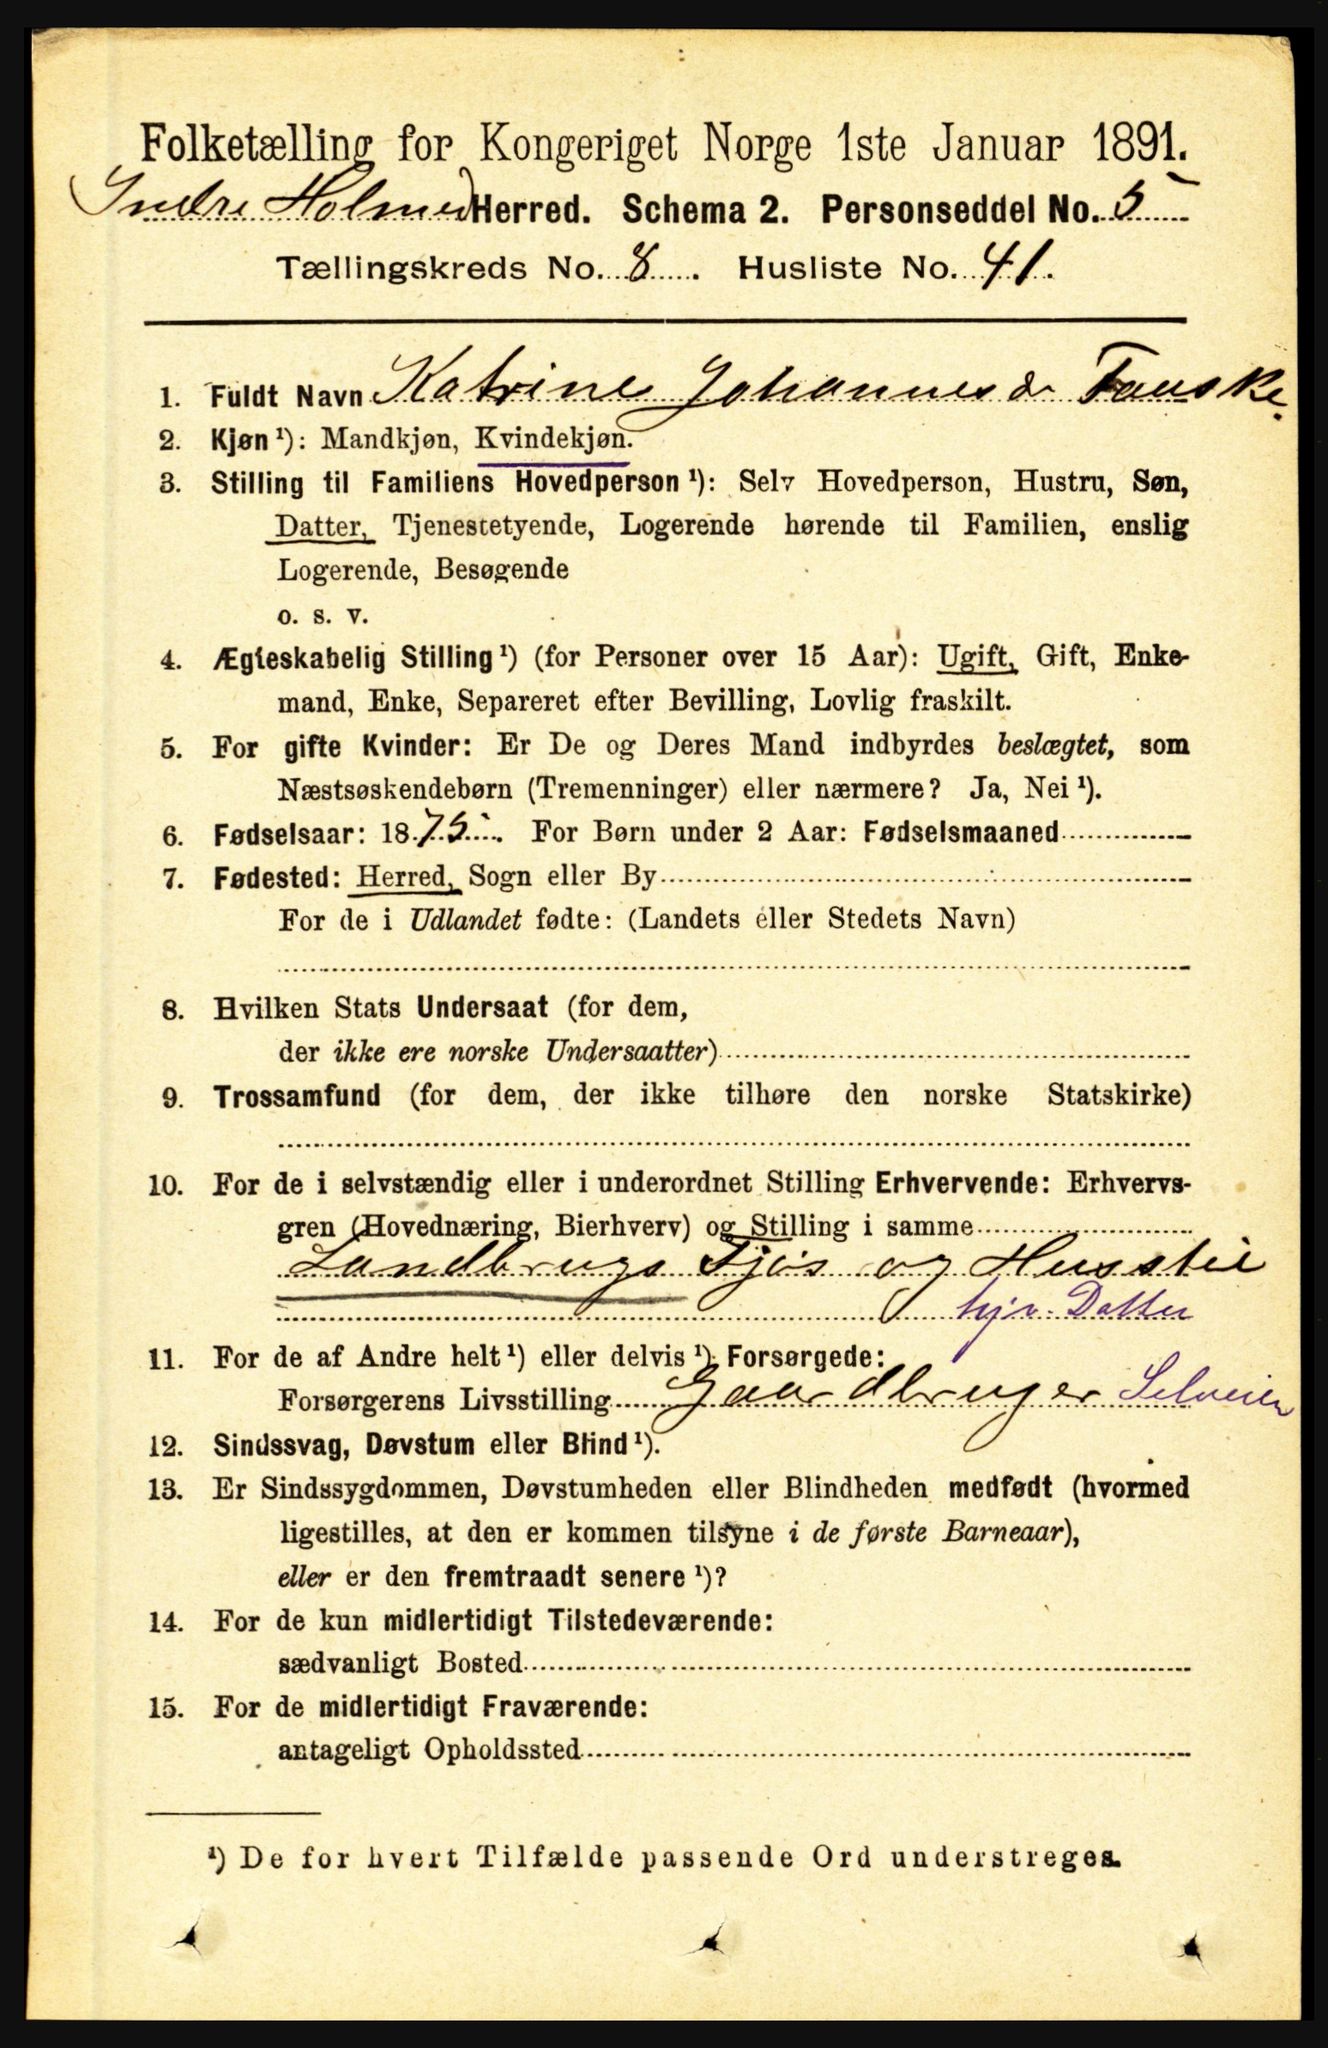 Folketælling for Kongeriget Norge 1ste Januar 1891.
Indre Holmed Herred. Schema 2. Personseddel No. 5
Tællingskreds No. 8. Husliste No. 41.
1. Fuldt Navn Katrine Johannesdr Fauske.
2. Kjøn ¹): Mandkjøn, Kvindekjøn.
3. Stilling til Familiens Hovedperson ¹): Selv Hovedperson, Hustru, Søn,
Datter, Tjenestetyende, Logerende hørende til Familien, enslig
Logerende, Besøgende
o. s. v.
4. Ægteskabelig Stilling ¹) (for Personer over 15 Aar): Ugift, Gift, Enke-
mand, Enke, Separeret efter Bevilling, Lovlig fraskilt.
5. For gifte Kvinder: Er De og Deres Mand indbyrdes beslægtet, som
Næstsøskendebørn (Tremenninger) eller nærmere? Ja, Nei ¹).
6. Fødselsaar: 1875. For Børn under 2 Aar: Fødselsmaaned
7. Fødested: Herred, Sogn eller By
For de i Udlandet fødte: (Landets eller Stedets Navn)
8. Hvilken Stats Undersaat (for dem,
der ikke ere norske Undersaatter)
9. Trossamfund (for dem, der ikke tilhøre den norske Statskirke)
10. For de i selvstændig eller i underordnet Stilling Erhvervende: Erhvervs-
gren (Hovednæring, Bierhverv) og Stilling i samme
Landbrugs Fjøs og Husstel
hjv. Datter
11. For de af Andre helt ¹) eller delvis ¹) Forsørgede:
Forsørgerens Livsstilling Gaardbruger Selveier
12. Sindssvag, Døvstum eller Blind ¹).
13. Er Sindssygdommen, Døvstumheden eller Blindheden medfødt (hvormed
ligestilles, at den er kommen tilsyne i de første Barneaar),
eller er den fremtraadt senere ¹)?
14. For de kun midlertidigt Tilstedeværende:
sædvanligt Bosted
15. For de midlertidigt Fraværende:
antageligt Opholdssted
¹) De for hvert Tilfælde passende Ord understreges.